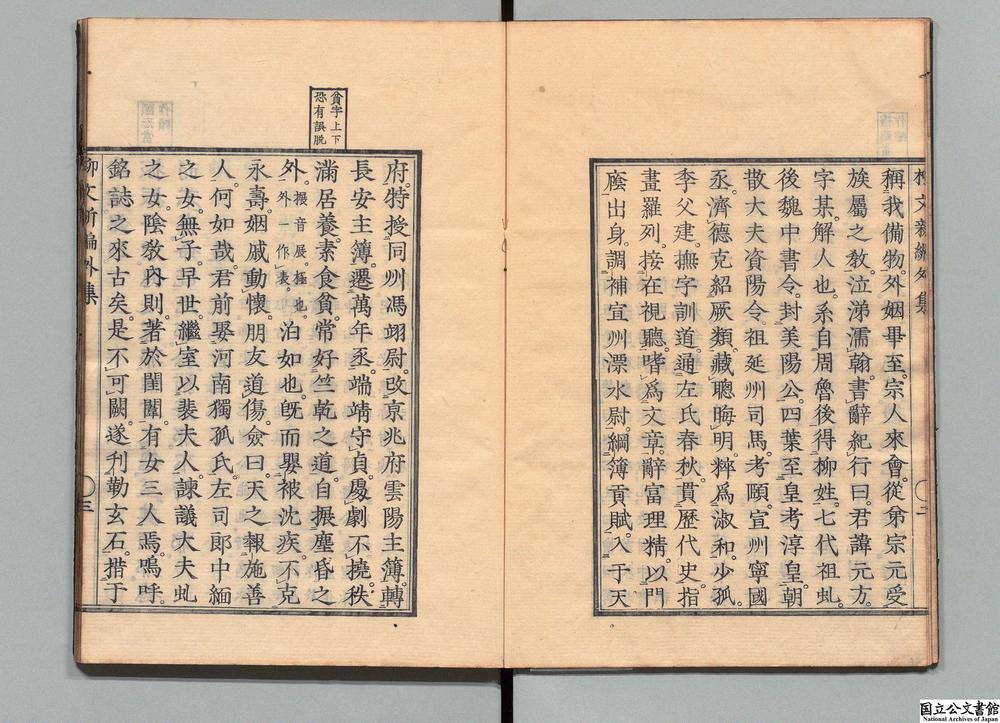 柳文新編外集
二
稱我備物外姻畢至宗人來會從弟宗元受
族屬之教泣涕濡翰書辭紀行曰君諱元方
字某解人也系自周魯後得柳姓七代祖虬
後魏中書令封美陽公四葉至皇考淳皇朝
散大夫資陽令祖延州司馬考頤宣州寧國
丞濟德克紹厥類藏聰晦明粹爲淑和少孤
季父建撫字訓道通左氏春秋貫歷代史指
畫羅列接在視聽皆爲文章辭富理精以門
廕出身調補宣州漂水尉綱簿貢賦入于天
府特授同州馮翊尉改京兆府雲陽主簿轉
長安主簿遷萬年丞端靖守貞處劇不撓秩
滿居養素食貧常好竺乾之道自振塵昏之
外搌音展極也外一作表泊如也既而嬰被沈疾不克
永壽姻戚動懷朋友道傷僉曰天之報施善
人何如哉君前娶河南獨孤氏左司郎中緬
之女無子早世繼室以裴夫人諫議大夫虬
之女陰教内則著於閨閫有女三人焉嗚呼
銘誌之來古矣是不可闕遂利勒玄石措于
貧字上下
恐有誤脱
柳文新編外集
三
国立公文書館
National Archives of Japan